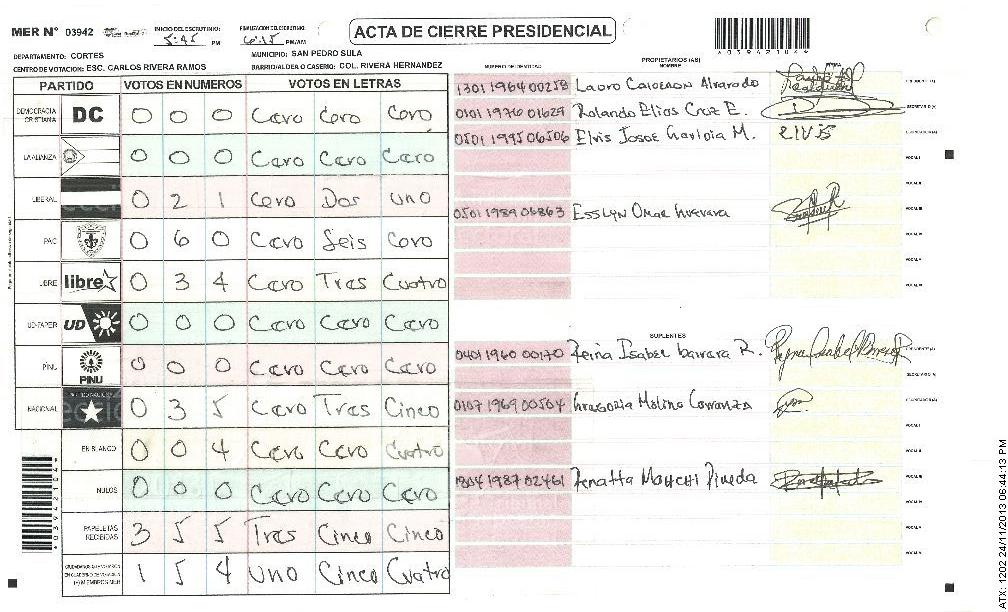 MER N° 03942
INICIO DEL ESCRUTINIO: 5:45 PM
FINALIZACION DEL ESCRUTINIO: 6:15 PM/AM
ACTA DE CIERRE PRESIDENCIAL
DEPARTAMENTO: CORTES
MUNICIPIO: SAN PEDRO SULA
CENTRO DE VOTACION: ESC. CARLOS RIVERA RAMOS
BARRIO/ALDEA O CASERIO: COL. RIVERA HERNANDEZ
PARTIDO VOTOS EN NUMEROS VOTOS EN LETRAS
DEMOCRACIA CRISTIANA DC 0 0 0 Cero Cero Cero
LA ALIANZA 0 0 0 Cero Cero Cero
LIBERAL 0 2 1 Cero Dos uno
PAC 0 6 0 Cero Seis Cero
LIBRE libre 0 3 4 Cero Tres Cuatro
UD-FAPER UD 0 0 0 Cero Cero Cero
PINU PINU 0 0 0 Cero Cero Cero
NACIONAL 0 3 5 Cero Tres Cinco
EN BLANCO 0 0 4 Cero Cero Cuatro
NULOS 0 0 0 Cero Cero Cero
PAPELETAS RECIBIDAS 3 5 5 Tres Cinco Cinco
1 5 4 uno Cinco Cuatro
NUMERO DE IDENTIDAD
PROPIETARIOS (AS)
NOMBRE
FIRMA
1301 1964 00258 Lauro Calderon Alvarado
0101 1976 01629 Rolando Elias Cruz E.
0501 1995 06506 Elvis Josue M. ELVIS
0501 1989 06863 Esslyn Omar Guevara
SUPLENTES
0401 1960 00170 Reina Isabel R.
0107 1969 00504 Gregoria Molina Carranza
1804 1987 02461 Renatta Pineda
ATX: 1202 24/11/2013 06:44:13 PM